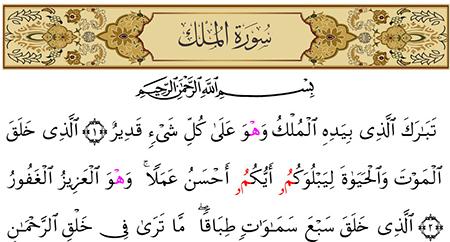 سُورَةُ الْمُلْكِ
بِسْمِ اللَّهِ الرَّحْمَٰنِ الرَّحِيمِ
تَبَارَكَ الَّذِي بِيَدِهِ الْمُلْكُ وَهْوَ عَلَىٰ كُلِّ شَيْءٍ قَدِيرٌ ﴿١﴾ الَّذِي خَلَقَ
الْمَوْتَ وَالْحَيَوٰةَ لِيَبْلُوَكُمُۥ أَيُّكُمُۥ أَحْسَنُ عَمَلًا ۚ وَهْوَ الْعَزِيزُ الْغَفُورُ
﴿٢﴾ الَّذِي خَلَقَ سَبْعَ سَمَٰوَٰتٍ طِبَاقًا ۖ مَّا تَرَىٰ فِي خَلْقِ الرَّحْمَٰنِ